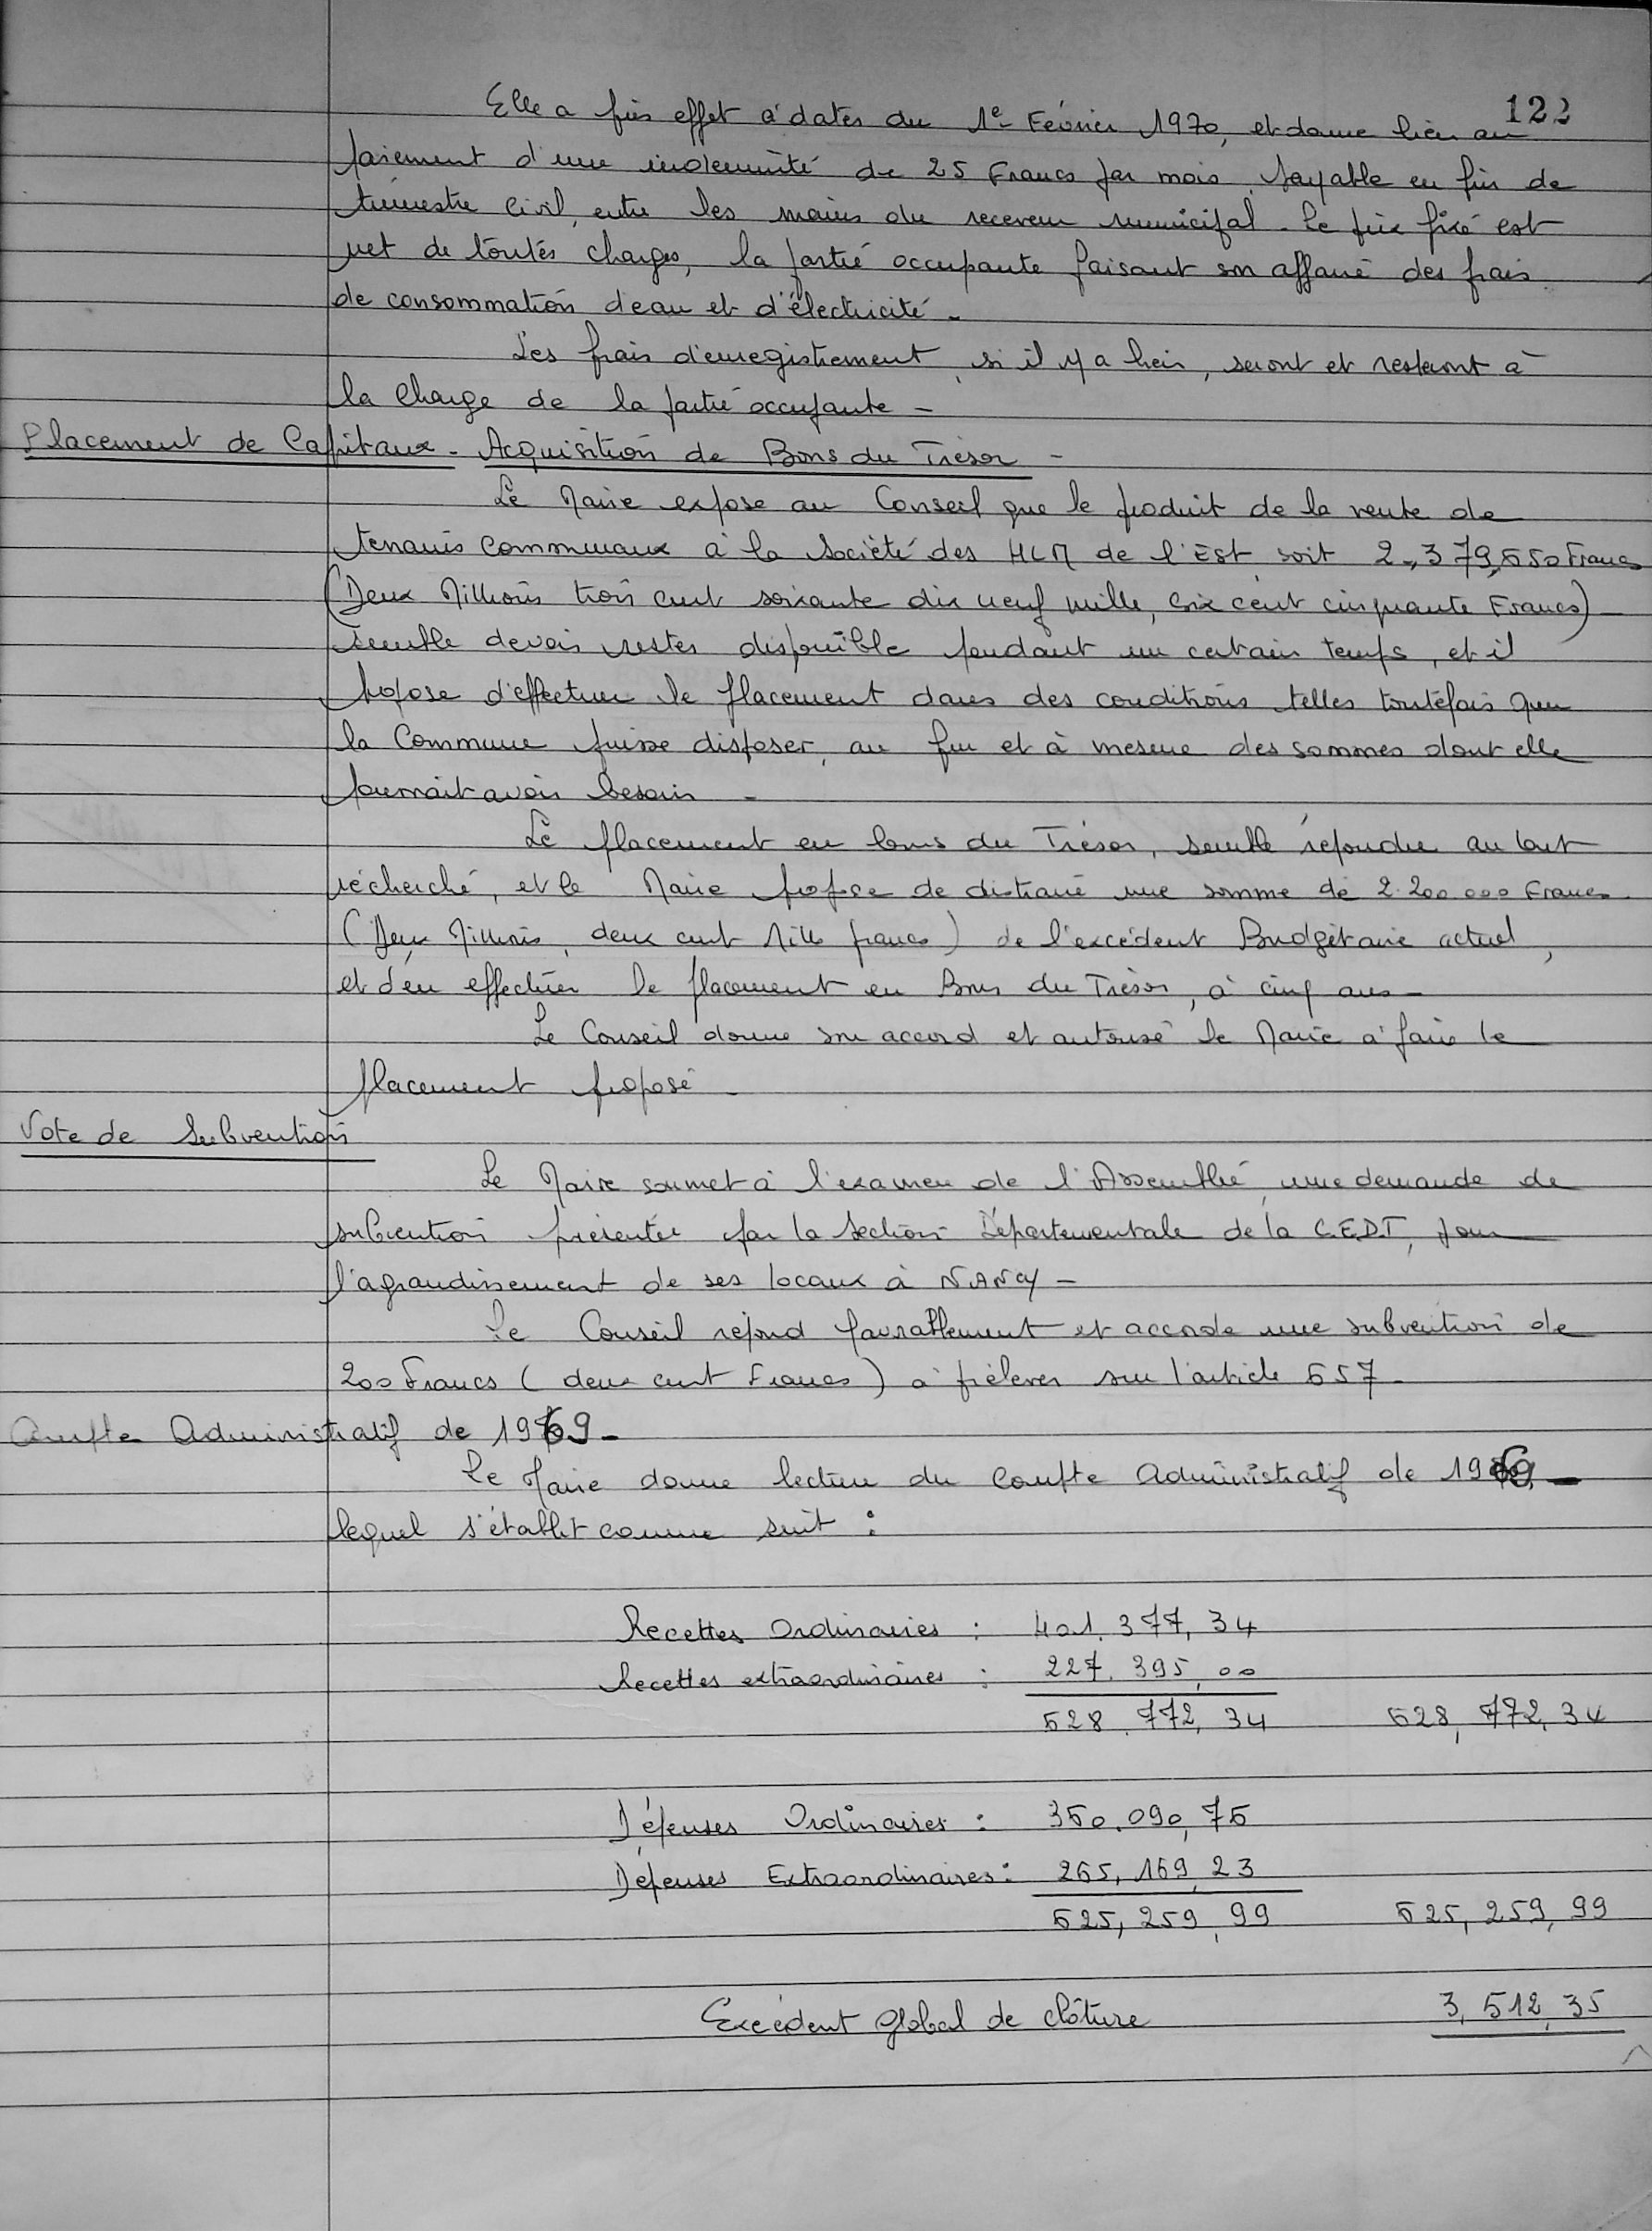 122
Elle a pris effet à dater du 1er Février 1970, et donne lieu au
paiement d'une indemnité de 25 Francs par mois, payable en fin de
trimestre civil, entre les mains du receveur municipal. Le prix fixé est
net de toutes charges, la partie occupante faisant son affaire des frais
de consommation d'eau et d'électricité.
Les frais d'enregistrement, si il y a lieu, seront et resteront à
la charge de la partie occupante -
Placement de Capitaux. Acquisition de Bons du Trésor -
Le Maire expose au Conseil que le produit de la vente de
terrains communaux à la Société des HLM de l'Est, soit 2.379.650 Francs
(Deux Millions trois cent soixante dix neuf mille, six cent cinquante Francs)
semble devoir rester disponible pendant un certain temps, et il
propose d'effectuer le placement dans des conditions telles toutefois que
la Commune puisse disposer, au fur et à mesure des sommes dont elle
pourrait avoir besoin -
Le placement en bons du Trésor, semble répondre au but
recherché, et le Maire propose de distraire une somme de 2.200.000 Francs
(Deux Millions, deux cent Mille francs) de l'excédent Budgétaire actuel,
et d'en effectuer le placement en Bons du Trésor, à cinq ans -
Le Conseil donne son accord et autorise le Maire à faire le
placement proposé -
Vote de Subvention
Le Maire soumet à l'examen de l'Assemblée, une demande de
subvention présentée par la Section Départementale de la C.E.D.T, pour
l'agrandissement de ses locaux à NANCY -
Le Conseil répond favorablement et accorde une subvention de
200 Francs (deux cent Francs) à prélever sur l'article 657 -
Compte Administratif de 1969 -
Le Maire donne lecture du Compte Administratif de 1969 -
lequel s'établit comme suit :
Recettes Ordinaires : 401.377,34
Recettes extraordinaires : 227.395,00
628.772,34 628,772,34
Dépenses Ordinaires : 360.090,76
Dépenses Extraordinaires : 265,169,23
625,259,99 625,259,99
Excédent global de clôture 3,512,35